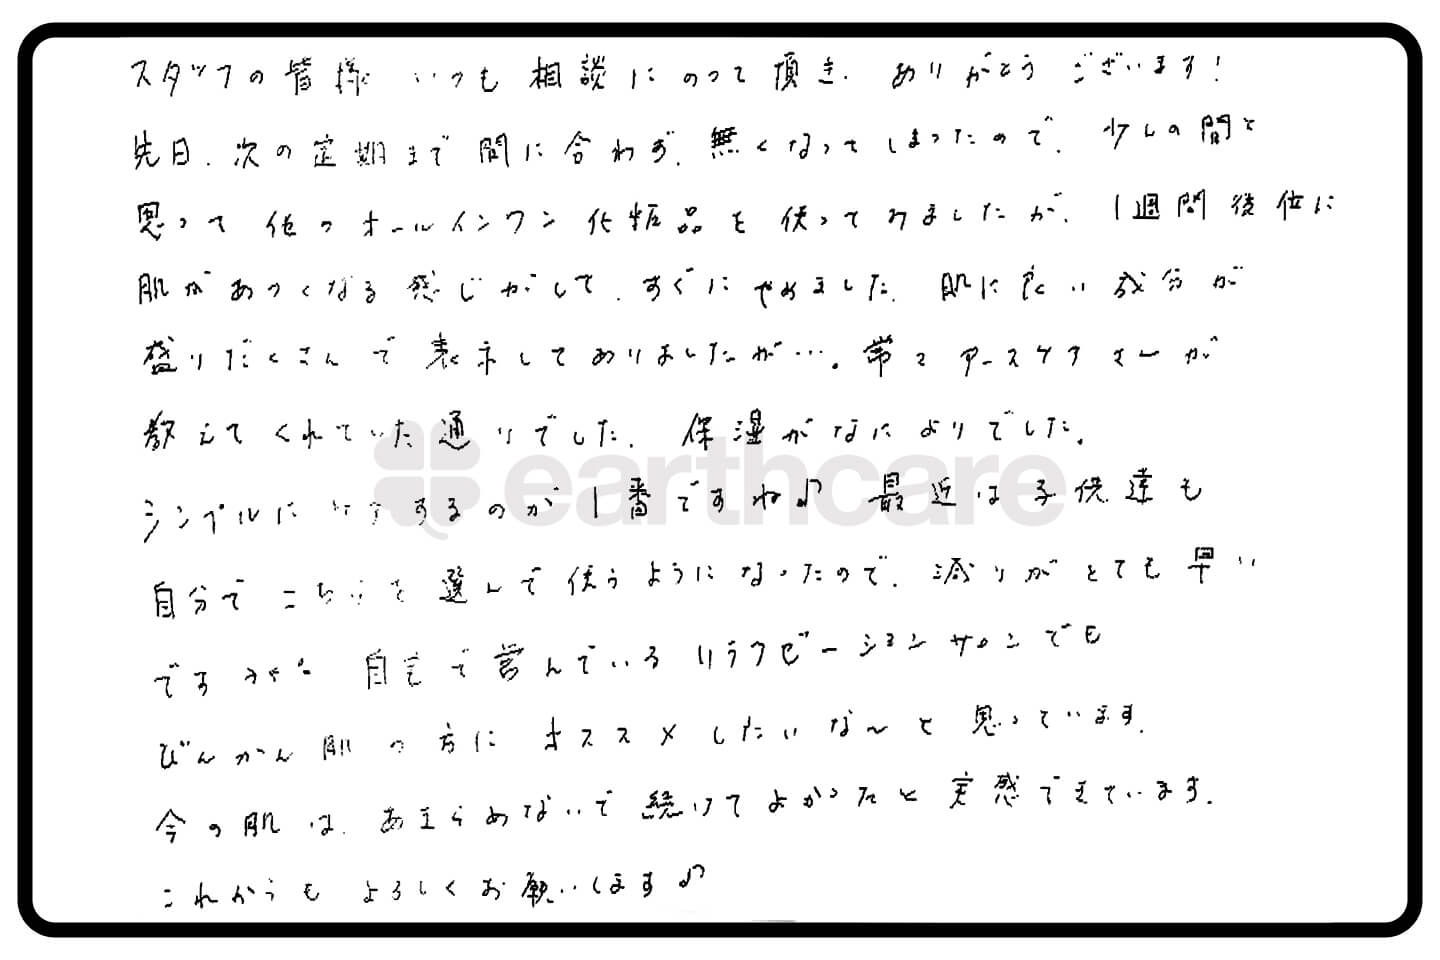 スタッフの皆様 いつも相談にのって頂き、ありがとうございます!
先日、次の定期まで間に合わず、無くなってしまったので、少しの間と
思って他のオールインワン化粧品を使ってみましたが、1週間後位に
肌があつくなる感じがして、すぐにやめました。肌に良い成分が
盛りだくさんで表示してありましたが…。常々アースケアさんが
教えてくれていた通りでした。保湿がなによりでした。
シンプルに するのが1番ですね♪ 最近は子供達も
自分で を選んで使うようになったので、減りがとても早い
ですが 自宅で営んでいるリラクゼーションサロンでも
びんかん肌の方にオススメしたいな～と思っています。
今の肌は、あきらめないで続けてよかったと実感できています。
これからもよろしくお願いします♪
earthcare